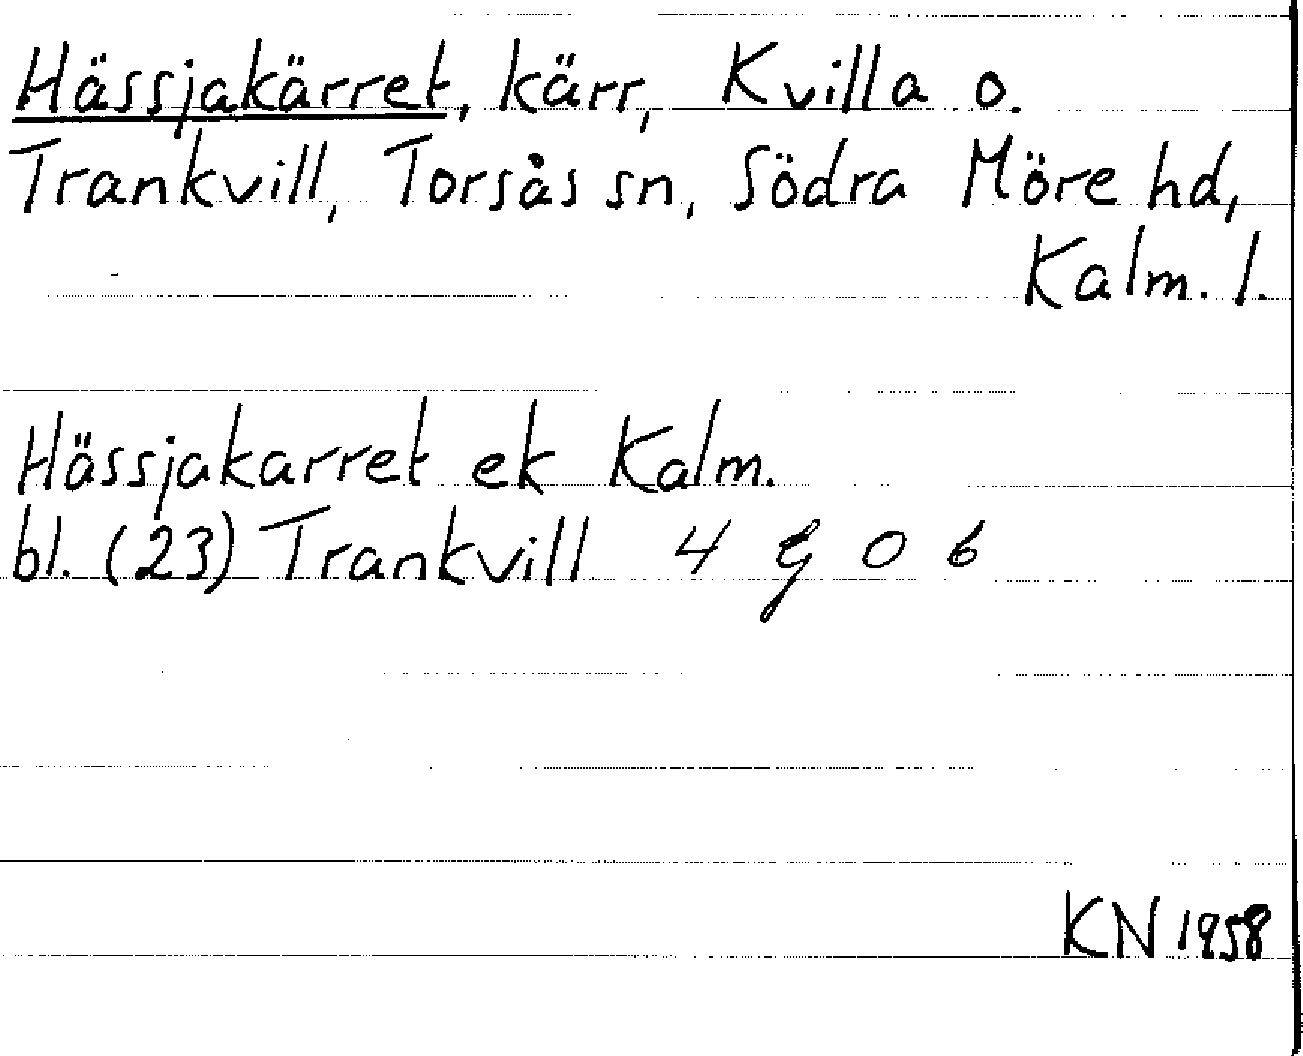 Hässjakärret, kärr, Kvilla o.
Trankvill, Torsås sn, Södra Möre hd,
Kalm. l.
Hässjakarret ek Kalm.
bl. (23) Trankvill 4 g 0 6
KN 1958